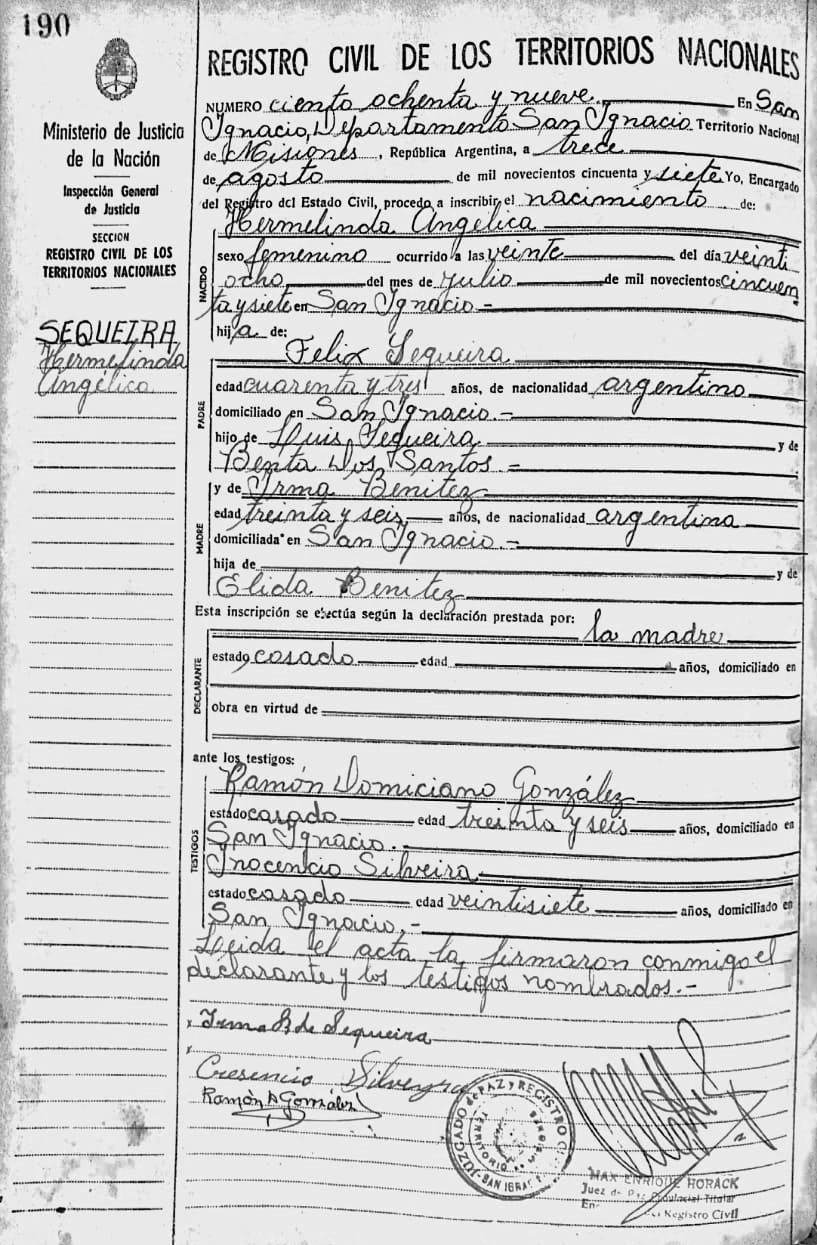 190
Ministerio de Justicia
de la Nación
Inspección General
de Justicia
SECCION
REGISTRO CIVIL DE LOS
TERRITORIOS NACIONALES
SEQUEIRA
Hermelinda
Angélica
REGISTRO CIVIL DE LOS TERRITORIOS NACIONALES
NUMERO ciento ochenta y nueve En San
Ignacio, Departamento San Ignacio Territorio Nacional
de Misiones, República Argentina, a trece
de agosto de mil novecientos cincuenta y siete Yo, Encargado
del Registro del Estado Civil, procedo a inscribir el nacimiento de:
Hermelinda Angélica
NACIDO
sexo femenino ocurrido a las veinte del día veinti
ocho del mes de Julio de mil novecientos cincuen
ta y siete en San Ignacio -
hija de:
Felix Sequeira
PADRE
edad cuarenta y tres años, de nacionalidad argentino
domiciliado en San Ignacio. -
hijo de Luis Sequeira y de
Benta Dos Santos. =
MADRE
y de Irma Benitez
edad treinta y seis años, de nacionalidad argentina
domiciliada en San Ignacio. -
hija de y de
Elida Benitez
Esta inscripción se efectúa según la declaración prestada por:
la madre
DECLARANTE
estado casado edad años, domiciliado en
obra en virtud de
ante los testigos:
TESTIGOS
Ramón Domiciano González
estado casado edad treinta y seis años, domiciliado en
San Ignacio. -
Inocencio Silveira
estado casado edad veintisiete años, domiciliado en
San Ignacio. -
Leida el acta la firmaron conmigo el
declarante y los testigos nombrados. -
Irma B de Sequeira
Cresencio Silveyra
Ramón D González
JUZGADO de PAZ y REGISTRO
TERRITORIO
SAN IGNAC
MAX ENRIQUE HORACK
Juez de Paz Provincial Titular
Registro Civil